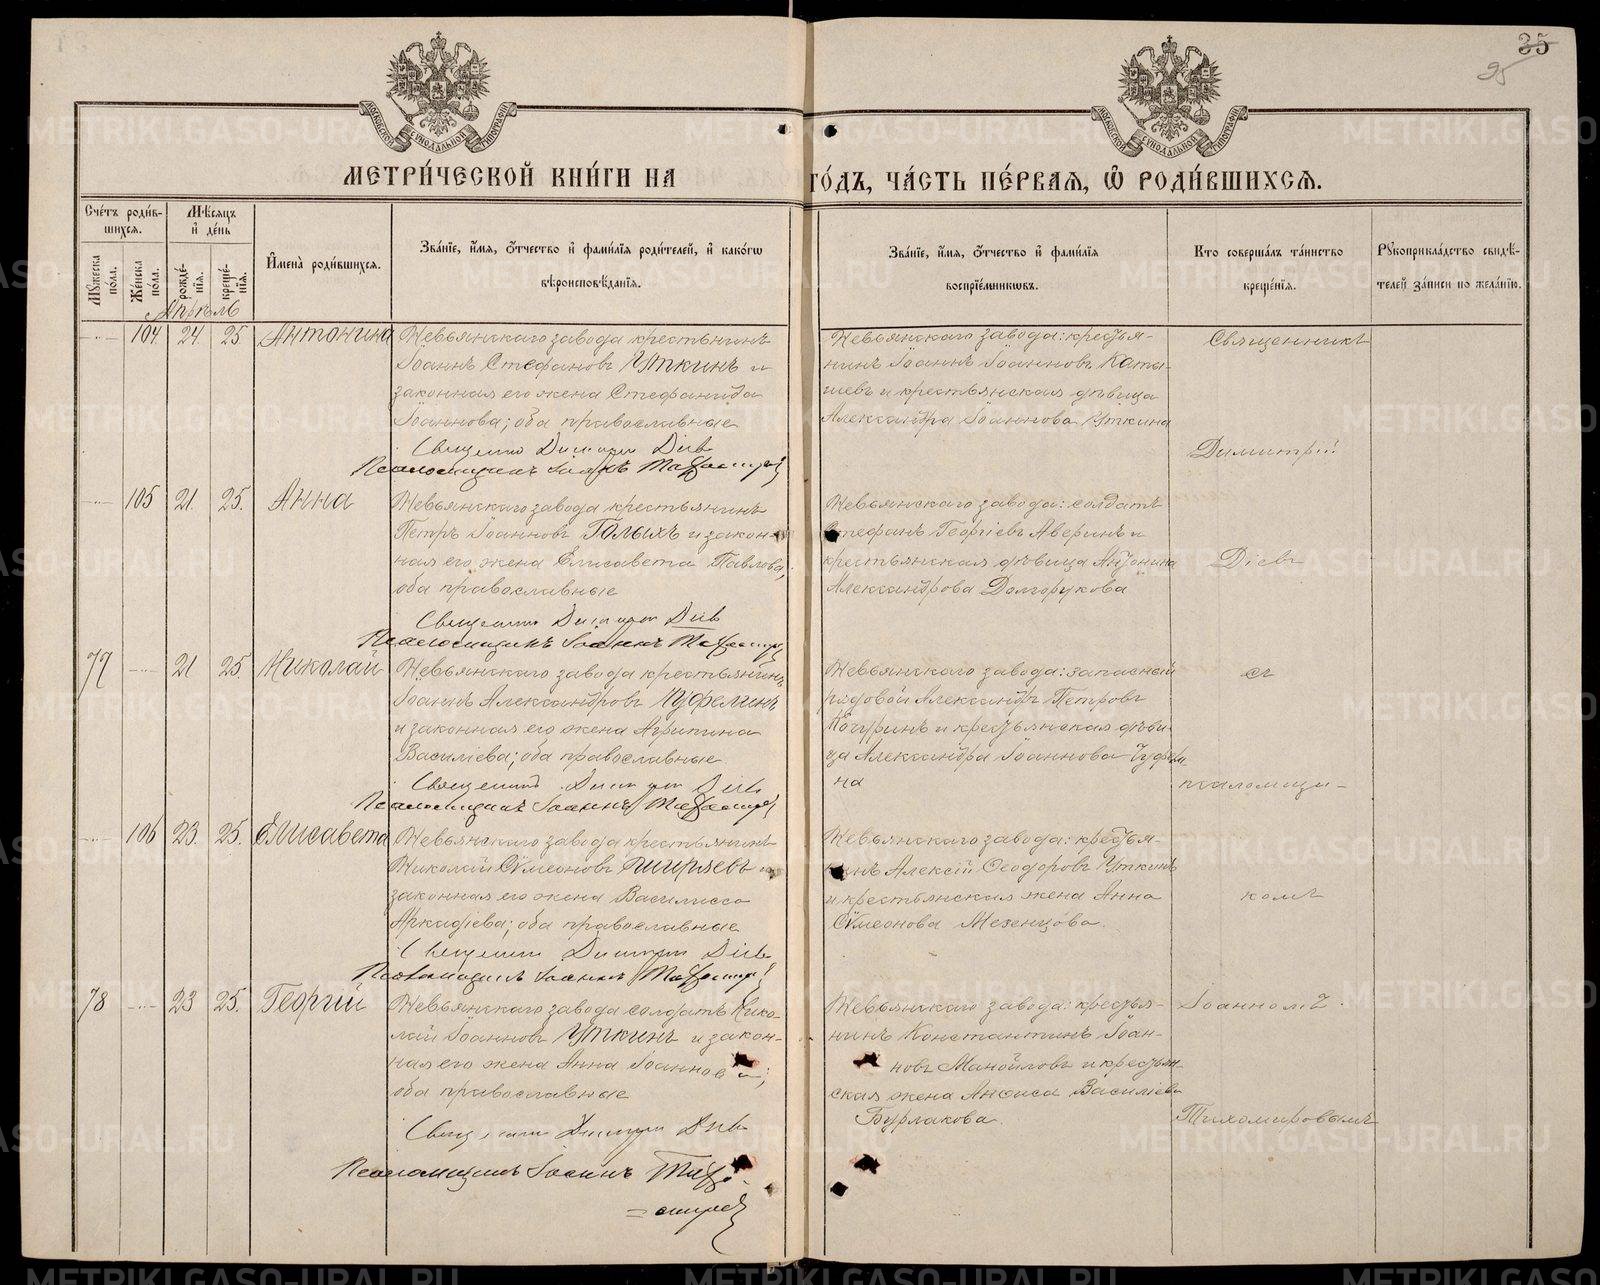 35
25
МОСКОВСКОЙ СѴНОДАЛЬНОЙ ТИПОГРАФІИ
МОСКОВСКОЙ СѴНОДАЛЬНОЙ ТИПОГРАФІИ
МЕТРИ́ЧЕСКОЙ КНИ́ГИ НА
ГО́ДЪ, ЧА́СТЬ ПЕ́РВАЯ, Ѡ҆ РОДИ́ВШИХСѦ.
Сче́тъ роди́в-
шихсѧ.
Мꙋжеска по́ла.
Женска по́ла.
Мѣсѧцъ и҆ де́нь
рожде́нїѧ.
креще́нїѧ.
И҆мена̀ роди́вшихсѧ.
Зва́нїе, и҆́мѧ, ѻ҆́тчество и҆ фами́лїѧ роди́телей, и҆ како́гѡ
вѣроисповѣ́данїѧ.
Зва́нїе, и҆́мѧ, ѻ҆́тчество и҆ фами́лїѧ
воспрїе́мникѡвъ.
Кто соверша́лъ та́инство
креще́нїѧ.
Рꙋкоприкла́дство свидѣ́-
телей за́писи по жела́нїю.
Апрѣль
104. 24. 25 Антонина
Невьянскаго завода крестьянинъ
Іоаннъ Стефановъ Уткинъ и
законная его жена Стефанида
Іоаннова; оба православные
Священникъ Димитрій Діевъ
Псаломщикъ Іоаннъ Тихомировъ
Невьянскаго завода: крестья-
нинъ Іоаннъ Іоанновъ Каты-
шевъ и крестьянская дѣвица
Александра Іоаннова Уткина
Священникъ
Димитрій
105 21. 25. Анна
Невьянскаго завода крестьянинъ
Петръ Іоанновъ Голыхъ и закон-
ная его жена Елисавета Павлова,
оба православные
Священникъ Димитрій Діевъ
Псаломщикъ Іоаннъ Тихомировъ
Невьянскаго завода: солдатъ
Стефанъ Георгіевъ Аверинъ и
крестьянская дѣвица Антонина
Александрова Долгорукова
Діевъ
77 21 25. Николай
Невьянскаго завода крестьянинъ
Іоаннъ Александровъ Чуфелинъ
и законная его жена Агрипина
Василіева; оба православные
Священникъ Димитрій Діевъ
Псаломщикъ Іоаннъ Тихомировъ
Невьянскаго завода: запасный
рядовой Александръ Петровъ
Кочуринъ и крестьянская дѣви-
ца Александра Іоаннова Чуфели
на
съ
псаломщи-
106 23. 25. Елисавета
Невьянскаго завода крестьянинъ
Николай Сѵмеоновъ и
законная его жена Василисса
Аркадіева; оба православные
Священникъ Димитрій Діевъ
Псаломщикъ Іоаннъ Тихомировъ
Невьянскаго завода: крестья-
нинъ Алексій Ѳеодоровъ Уткинъ
и крестьянская жена Анна
Сѵмеонова Мезенцова.
комъ
78 23 25. Георгій
Невьянскаго завода солдатъ Нико-
лай Іоанновъ Уткинъ и закон-
ная его жена Анна Іоаннова;
оба православные
Священникъ Димитрій Діевъ
Псаломщикъ Іоаннъ Тихо-
=мировъ
Невьянскаго завода: крестья-
нинъ Константинъ Іоан-
новъ Манойловъ и крестьян-
ская жена Анѳиса Василіева
Бурлакова.
Іоанномъ
Тихомировымъ
METRIKI.GASO-URAL.RU